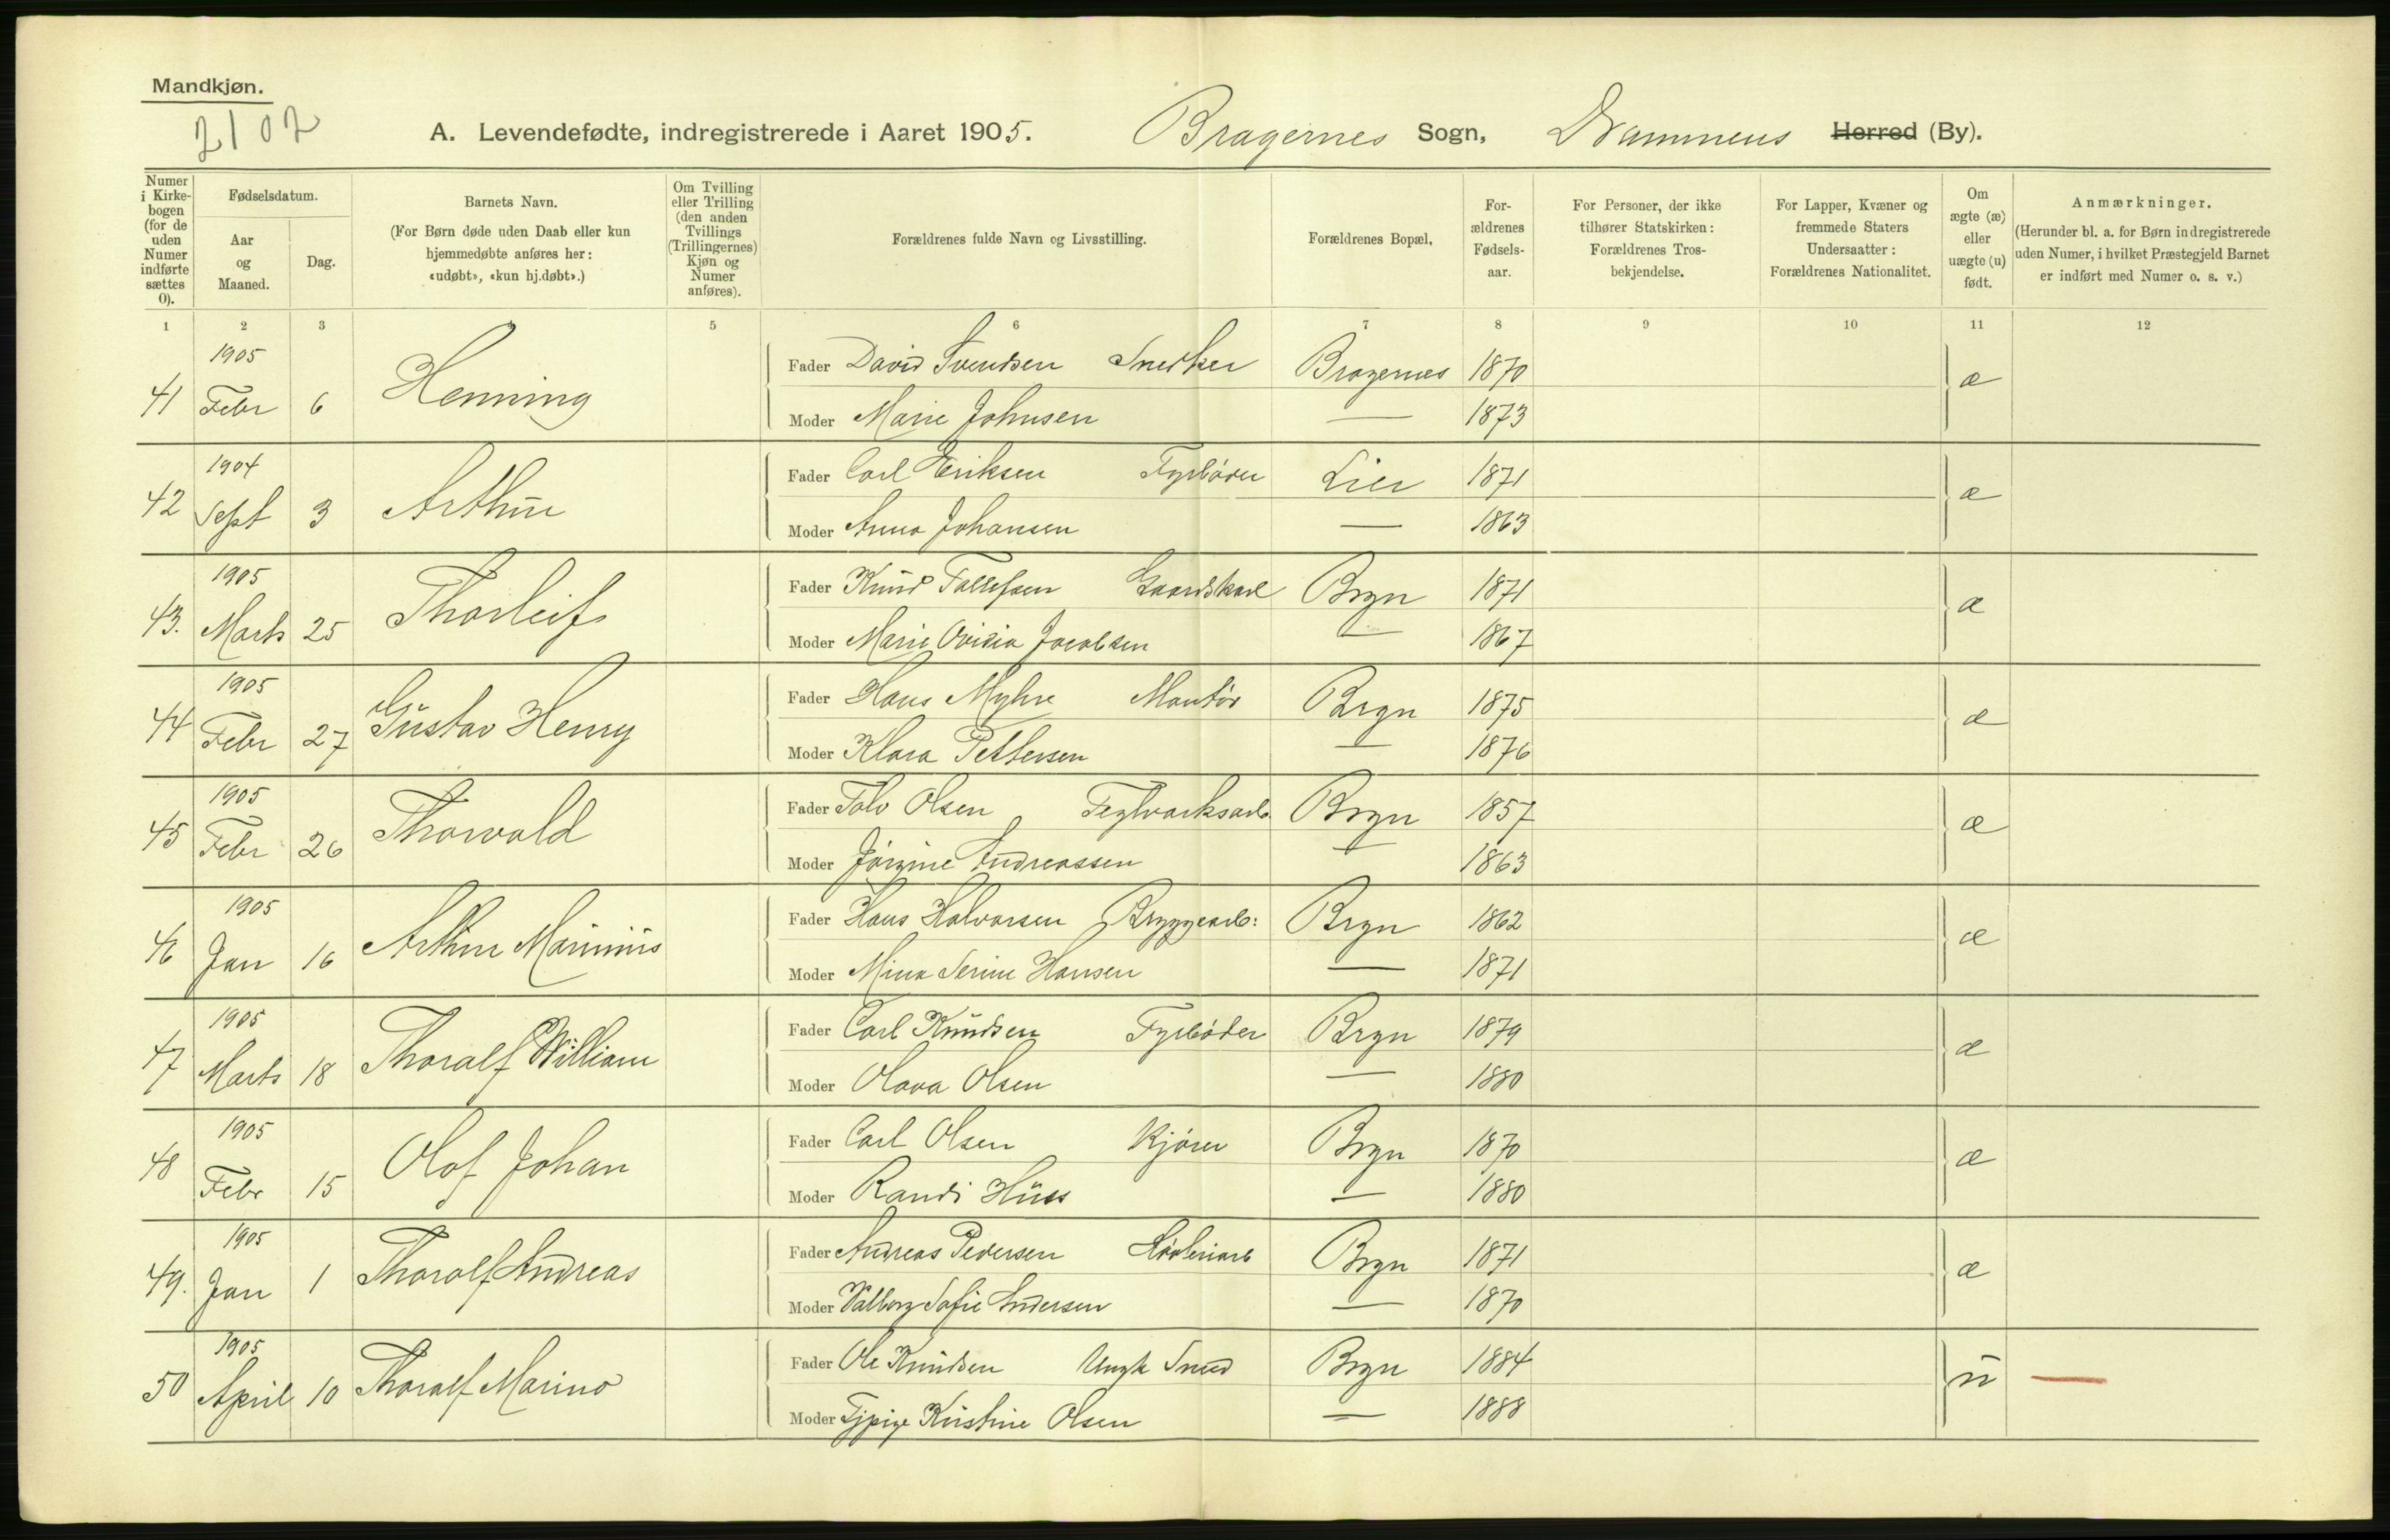 Mandkjøn.
2102
A. Levendefødte, indregistrerede i Aaret 1905. Bragernes Sogn, Drammens Herred (By).
Numer i Kirkebogen (for de uden Numer indførte sættes 0).
Fødselsdatum.
Aar og Maaned.
Dag.
Barnets Navn.
(For Børn døde uden Daab eller kun hjemmedøbte anføres her: «udøbt», «kun hj.døbt».)
Om Tvilling eller Trilling (den anden Tvillings (Trillingernes) Kjøn og Numer anføres).
Forældrenes fulde Navn og Livsstilling.
Forældrenes Bopæl,
Forældrenes Fødselsaar.
For Personer, der ikke tilhører Statskirken: Forældrenes Trosbekjendelse.
For Lapper, Kvæner og fremmede Staters Undersaatter: Forældrenes Nationalitet.
Om ægte (æ) eller uægte (u) født.
Anmærkninger.
(Herunder bl. a. for Børn indregistrerede uden Numer, i hvilket Præstegjeld Barnet er indført med Numer o. s. v.)
1 2 3 5 6 7 8 9 10 11 12
1905
41 Febr 6 Henning Fader David Svendsen Snedker Bragernes 1870 æ
Moder Marie Johnsen — 1873
1904
42 Sept 3 Arthur Fader Carl Eriksen Fyrbøder Lier 1871 æ
Moder Anna Johansen — 1863
1905
43. Marts 25 Thorleif Fader Knud Tollefsen Gaardskarl Brgn 1871 æ
Moder Marie Ovidia Jacobsen — 1867
1905
44 Febr 27 Gustav Henry Fader Hans Myhre Montør Brgn 1875 æ
Moder Klara Pettersen — 1876
1905
45 Febr 26 Thorvald Fader Tolv Olsen Teglværksarb. Brgn 1857 æ
Moder Jørgine Andreassen — 1863
1905
46 Jan 16 Arthur Marinius Fader Hans Halvorsen Bryggearb: Brgn 1862 æ
Moder Mina Serine Hansen — 1871
1905
47 Marts 18 Thoralf William Fader Carl Knudsen Fyrbøder Brgn 1879 æ
Moder Olava Olsen — 1880
1905
48 Febr 15 Olof Johan Fader Carl Olsen Kjører Brgn 1870 æ
Moder Randi Huss — 1880
1905
49. Jan 1 Thoralf Andreas Fader Andreas Pedersen Brgn 1871 æ
Moder Valborg Sofie Andersen — 1870
1905
50 April 10 Thoralf Marino Fader Ole Knudsen Ungk Smed Brgn 1884 u —
Moder Tjpige Kristine Olsen — 1888